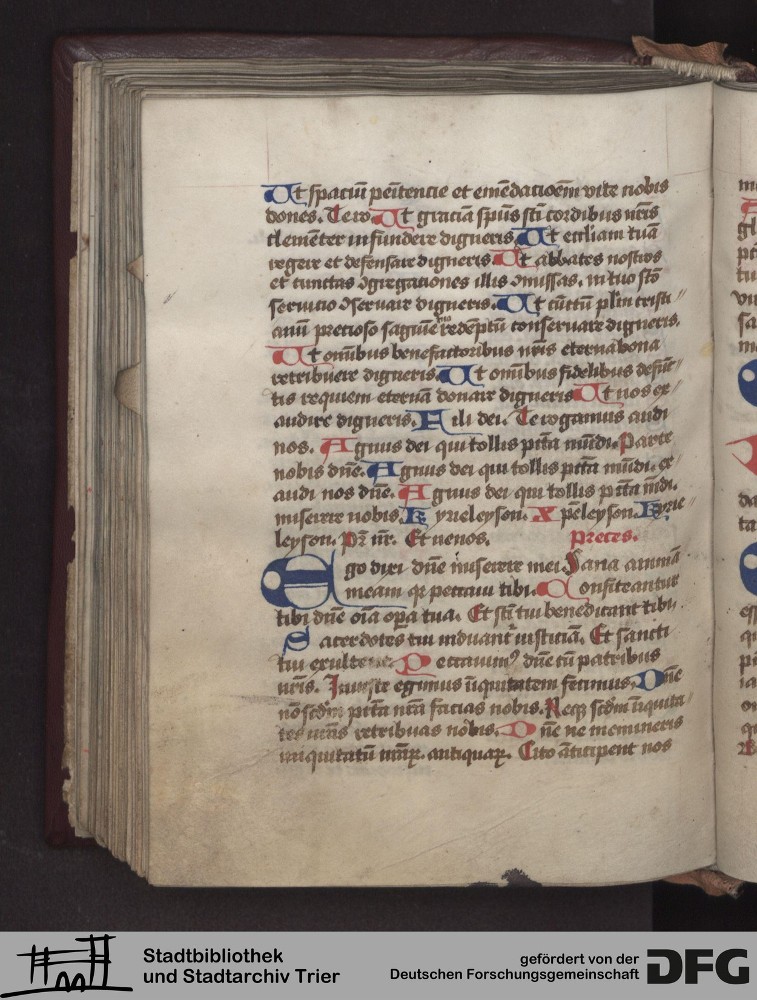 Ut spaciū peītencie et emēdacioēm vite nobis
dones. Te ro. Ut graciā sp̄us sc̄i cordibus nr̄is
clemēter infundere digneris. Ut eccl̄iam tuā
regere et defensare digneris. Ut abbates nostros
et cunctas ꝯgregationes illis ꝯmissas. in tuo sc̄o
seruicio ꝯseruare digneris. Ut cūctū pl̄m cristi
anū precioso saguīe redēptū conseruare digneris.
Ut oīnibus benefactoribus nr̄is eterna bona
retribuere digneris. Ut oīnibus fidelibus defūc
tis requiem eternā donare digneris Ut nos ex
audire digneris. Fili dei. Te rogamus audi
nos. Agnus dei qui tollis pc̄ta mūdi. Parce
nobis dn̄e. Agnus dei qui tollis pc̄ta mūdi. ex
audi nos dn̄e. Agnus dei qui tollis pc̄ta m̄di.
miserere nobis. Kyrieleyson. Xpeleyson. Kyrie
leyson. Pr̄ nr̄. Et ne nos. preces.
Ego dixi dn̄e miserere mei. Sana animā
meam qꝛ peccaui tibi. Confiteantur
tibi dn̄e oīa oꝑa tua. Et sc̄i tui benedicant tibi
Sacerdotes tui induant᷑ iusticiā. Et sancti
tui exultent. Peccauimꝰ dn̄e cū patribus
nr̄is. Iniuste egimus īiquitatem fecimus. Dn̄e
nō scdm̄ pc̄ta nr̄a facias nobis. Neqꝫ scdm̄ īiquita
tes nr̄as retribuas nobis. Dn̄e ne memineris
iniquitatū nr̄aꝝ antiquaꝝ. Cito āticipent nos
Stadtbibliothek
und Stadtarchiv Trier
gefördert von der
Deutschen Forschungsgemeinschaft
DFG